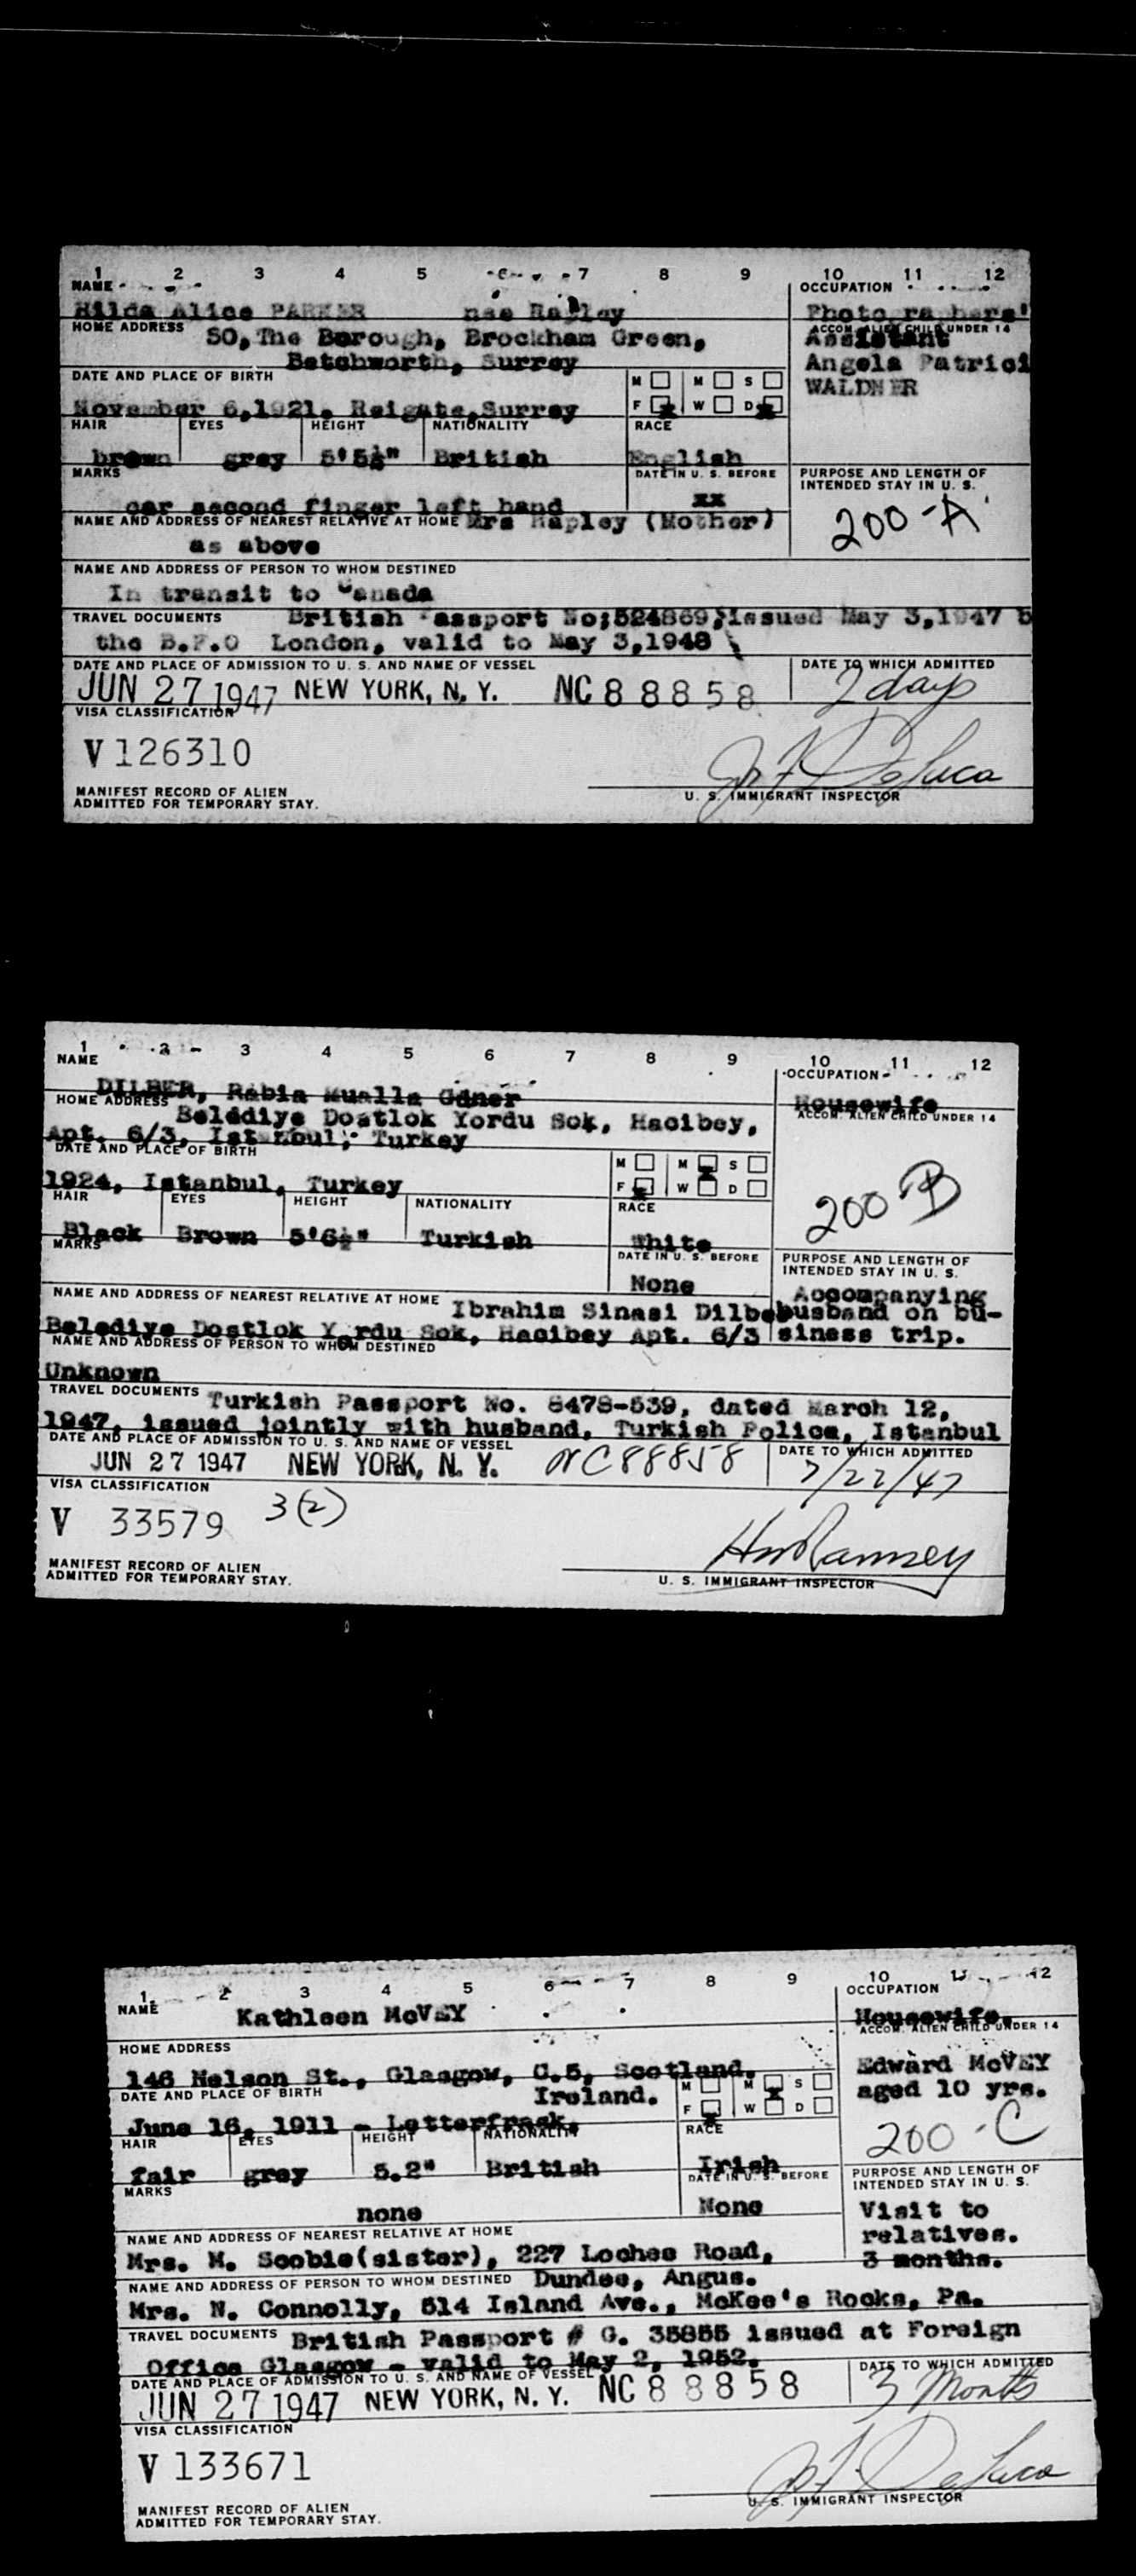 1 2 3 4 5 6 7 8 9 10 11 12
NAME OCCUPATION
Hilda Alice PARKER nee Rapley Photographers'
HOME ADDRESS ACCOM. ALIEN CHILD UNDER 14
50, The Borough, Brockham Green, Assistant
Betchworth, Surrey Angela Patrici
DATE AND PLACE OF BIRTH M M S WALDNER
F W D
November 6,1921, Reigate,Surrey
HAIR EYES HEIGHT NATIONALITY RACE
brown grey 5'5½" British English
MARKS DATE IN U. S. BEFORE PURPOSE AND LENGTH OF
INTENDED STAY IN U. S.
car second finger left hand xx
200-A
NAME AND ADDRESS OF NEAREST RELATIVE AT HOME Mrs Rapley (Mother)
as above
NAME AND ADDRESS OF PERSON TO WHOM DESTINED
In transit to Canada
TRAVEL DOCUMENTS British Passport No;524869,issued May 3,1947 b
the B.F.O London, valid to May 3,1948
DATE AND PLACE OF ADMISSION TO U. S. AND NAME OF VESSEL DATE TO WHICH ADMITTED
JUN 27 1947 NEW YORK, N. Y. NC 88858 2 days
VISA CLASSIFICATION
V 126310
MANIFEST RECORD OF ALIEN
ADMITTED FOR TEMPORARY STAY.
U. S. IMMIGRANT INSPECTOR
1 2 3 4 5 6 7 8 9 10 11 12
NAME OCCUPATION
DILBER, Rabia Mualla Guner Housewife
HOME ADDRESS ACCOM. ALIEN CHILD UNDER 14
Belediye Dostlok Yordu Sok, Hacibey,
Apt. 6/3, Istanbul, Turkey
DATE AND PLACE OF BIRTH M M S
F W D
1924, Istanbul, Turkey 200-B
HAIR EYES HEIGHT NATIONALITY RACE
Black Brown 5'6½" Turkish White
MARKS DATE IN U. S. BEFORE PURPOSE AND LENGTH OF
INTENDED STAY IN U. S.
None Accompanying
NAME AND ADDRESS OF NEAREST RELATIVE AT HOME Ibrahim Sinasi Dilbe husband on bu-
Belediye Dostlok Yordu Sok, Hacibey Apt. 6/3 siness trip.
NAME AND ADDRESS OF PERSON TO WHOM DESTINED
Unknown
TRAVEL DOCUMENTS Turkish Passport No. 8478-539, dated March 12,
1947, issued jointly with husband, Turkish Police, Istanbul
DATE AND PLACE OF ADMISSION TO U. S. AND NAME OF VESSEL DATE TO WHICH ADMITTED
JUN 27 1947 NEW YORK, N. Y. NC88858 7/22/47
VISA CLASSIFICATION 3(2)
V 33579
HW Ramsey
MANIFEST RECORD OF ALIEN
ADMITTED FOR TEMPORARY STAY.
U. S. IMMIGRANT INSPECTOR
1 2 3 4 5 6 7 8 9 10 11 12
NAME OCCUPATION
Kathleen McVEY Housewife.
HOME ADDRESS ACCOM. ALIEN CHILD UNDER 14
146 Nelson St., Glasgow, C.5, Scotland. Edward McVEY
DATE AND PLACE OF BIRTH Ireland. M M S aged 10 yrs.
F W D
June 16, 1911 - Letterfrack, 200-C
HAIR EYES HEIGHT NATIONALITY RACE
fair grey 5.2" British Irish
MARKS DATE IN U. S. BEFORE PURPOSE AND LENGTH OF
INTENDED STAY IN U. S.
none None Visit to
NAME AND ADDRESS OF NEAREST RELATIVE AT HOME relatives.
Mrs. M. Scobie(sister), 227 Lochee Road, 3 months.
NAME AND ADDRESS OF PERSON TO WHOM DESTINED Dundee, Angus.
Mrs. N. Connolly, 514 Island Ave., McKee's Rocks, Pa.
TRAVEL DOCUMENTS British Passport # G. 35855 issued at Foreign
Office Glasgow - valid to May 2, 1952.
DATE AND PLACE OF ADMISSION TO U. S. AND NAME OF VESSEL DATE TO WHICH ADMITTED
JUN 27 1947 NEW YORK, N. Y. NC 88858 3 Months
VISA CLASSIFICATION
V 133671
MANIFEST RECORD OF ALIEN
ADMITTED FOR TEMPORARY STAY.
U. S. IMMIGRANT INSPECTOR